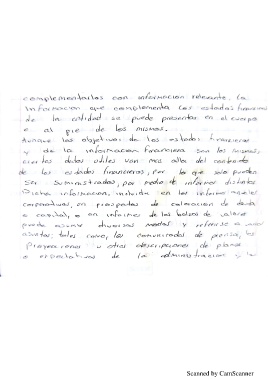 complementarlos con información relevante. La
información que complementa los estados financieros
de la entidad se puede presentar en el cuerpo
o al pie de los mismos.
Aunque los objetivos de los estados financieros
y de la información financiera son los mismos,
ciertos datos utiles van mas alla del contenido
de los estados financieros, por lo que solo pueden
ser suministrados, por medio de informes distintos
Dicha información, incluida en los informes anuales
corporativos, en prospectos de colocación de deuda
o capital, o en informes de las bolsas de valores
puede asumir diversas modos y referirse a
asuntos; tales como, los comunicados de prensa, las
proyecciones u otras descripciones de planes
o expectativas de la administración y la
Scanned by CamScanner